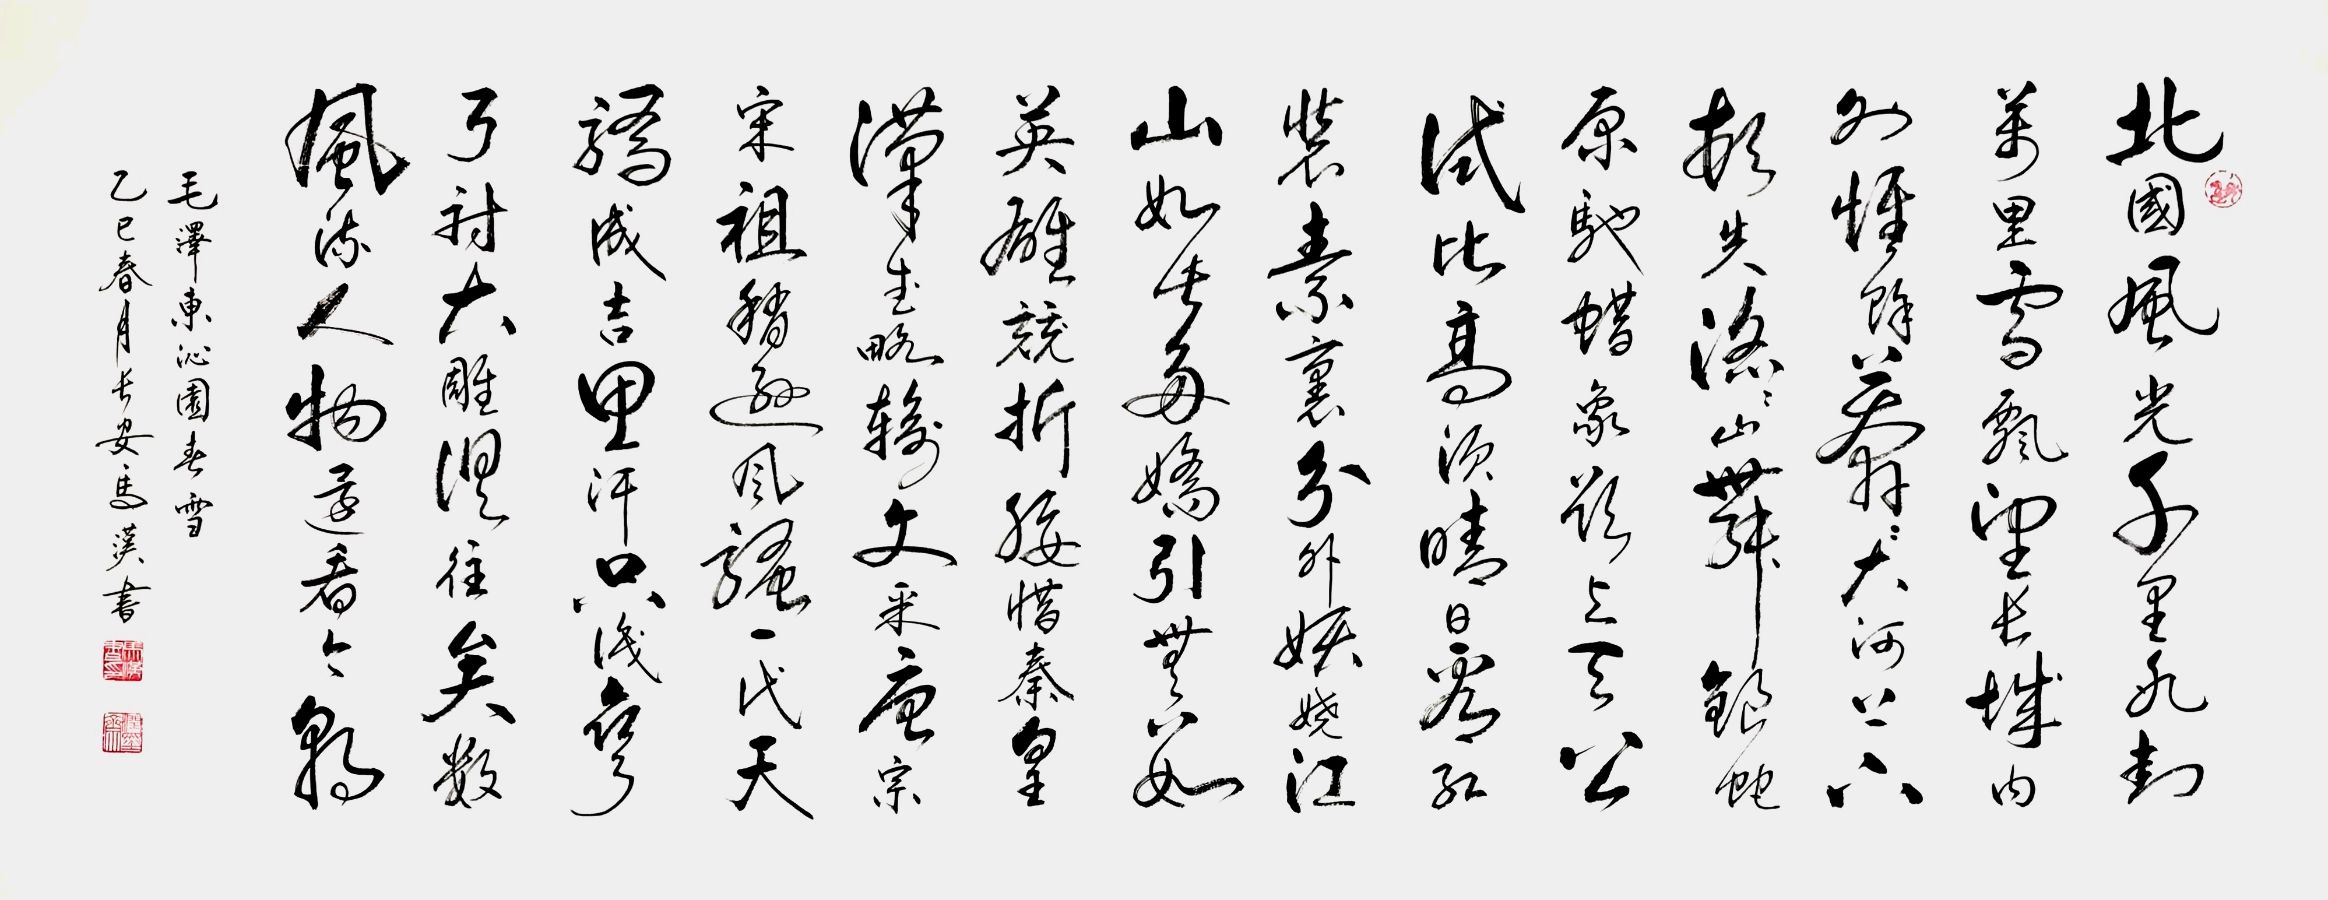 北國風光千里冰封
萬里雪飄望長城内
外惟餘莽〻大河上下
頓失滔〻山舞銀蛇
原馳蜡象欲上天公
試比高須晴日看紅
裝素裹分外妖嬈江
山如此多嬌引無數
英雄競折腰惜秦皇
漢武略輸文采唐宗
宋祖稍遜风騷一代天
驕成吉思汗只識彎
弓射大雕俱往矣数
風流人物還看今朝
毛澤東沁園春雪
乙巳春月長安馬漢書